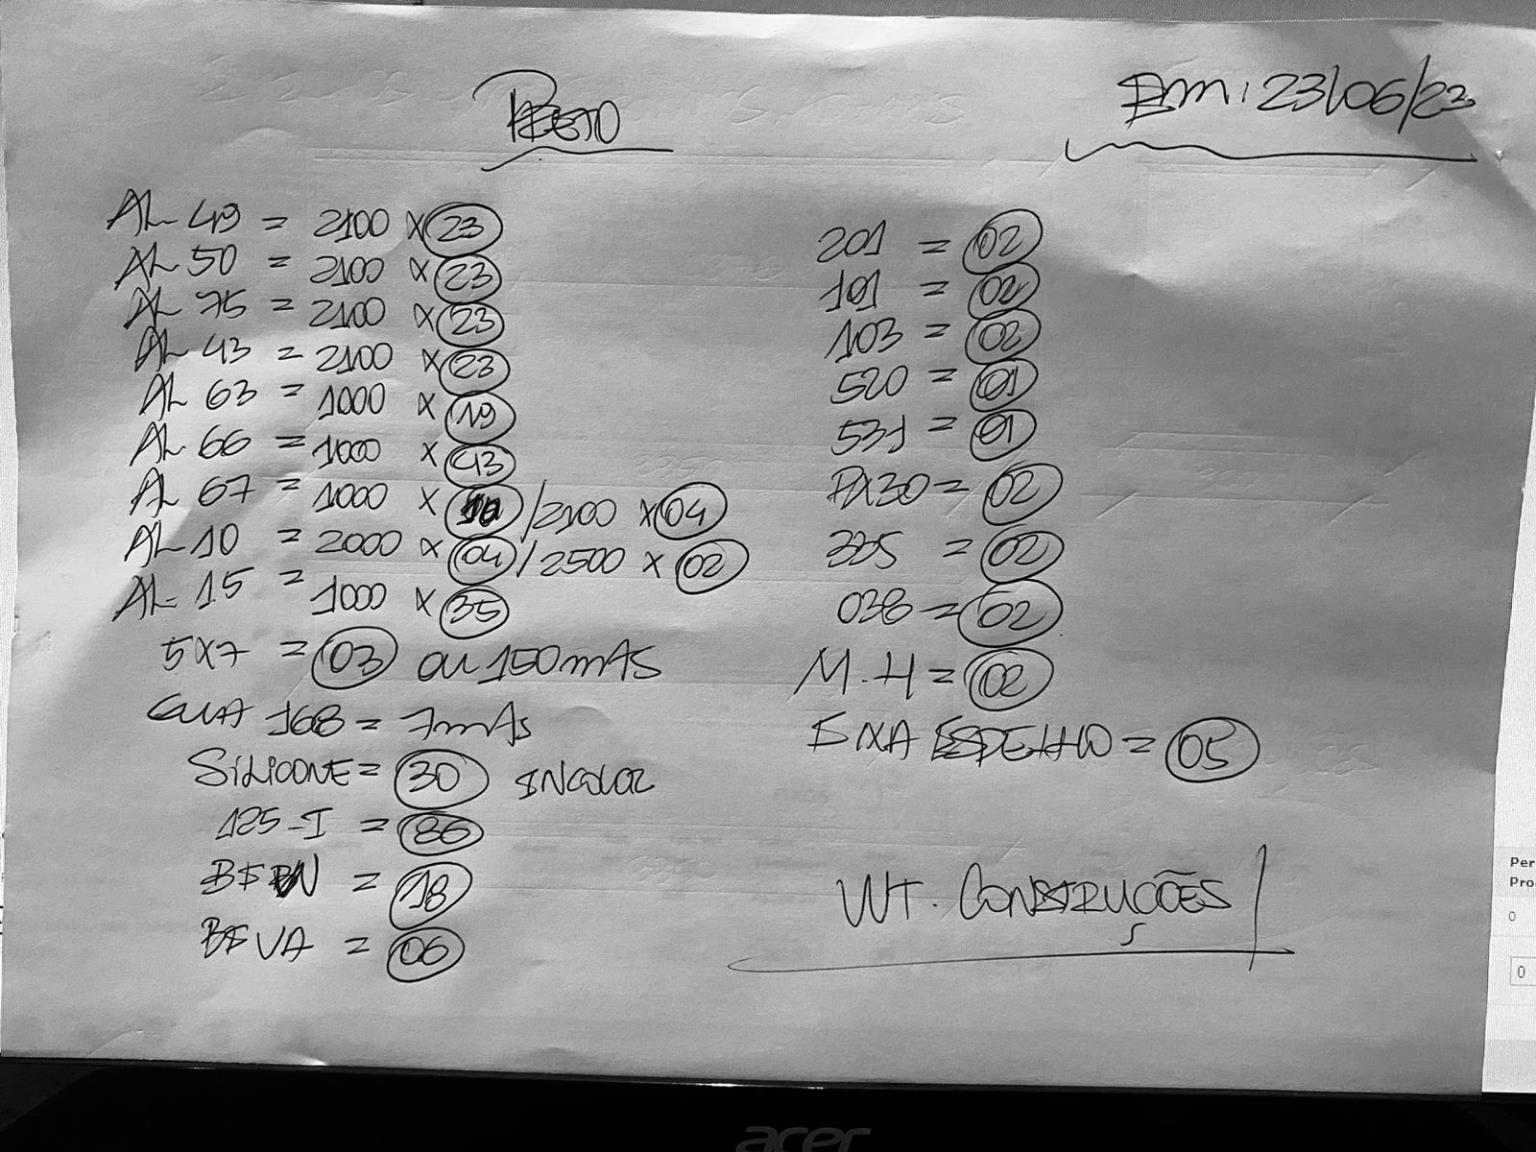 PRETO
Em: 23/06/23
AL 49 = 2100 x 23
AL 50 = 2100 x 23
AL 75 = 2100 x 23
AL 43 = 2100 x 23
AL 63 = 1000 x 19
AL 66 = 1000 x 43
AL 67 = 1000 x 10 / 2100 x 04
AL 10 = 2000 x 04 / 2500 x 02
AL-15 = 1000 x 35
5x7 = 03 ou 150mAS
GUIA 168 = 7mAs
SILICONE = 30 INCOLOR
125-I = 86
BF = 18
BFVA = 06
201 = 02
101 = 02
103 = 02
520 = 01
531 = 01
PX30 = 02
335 = 02
038 = 02
M.H = 02
FIXA ESPELHO = 05
WT. CONSTRUÇÕES
Per
Pro
0
0
acer